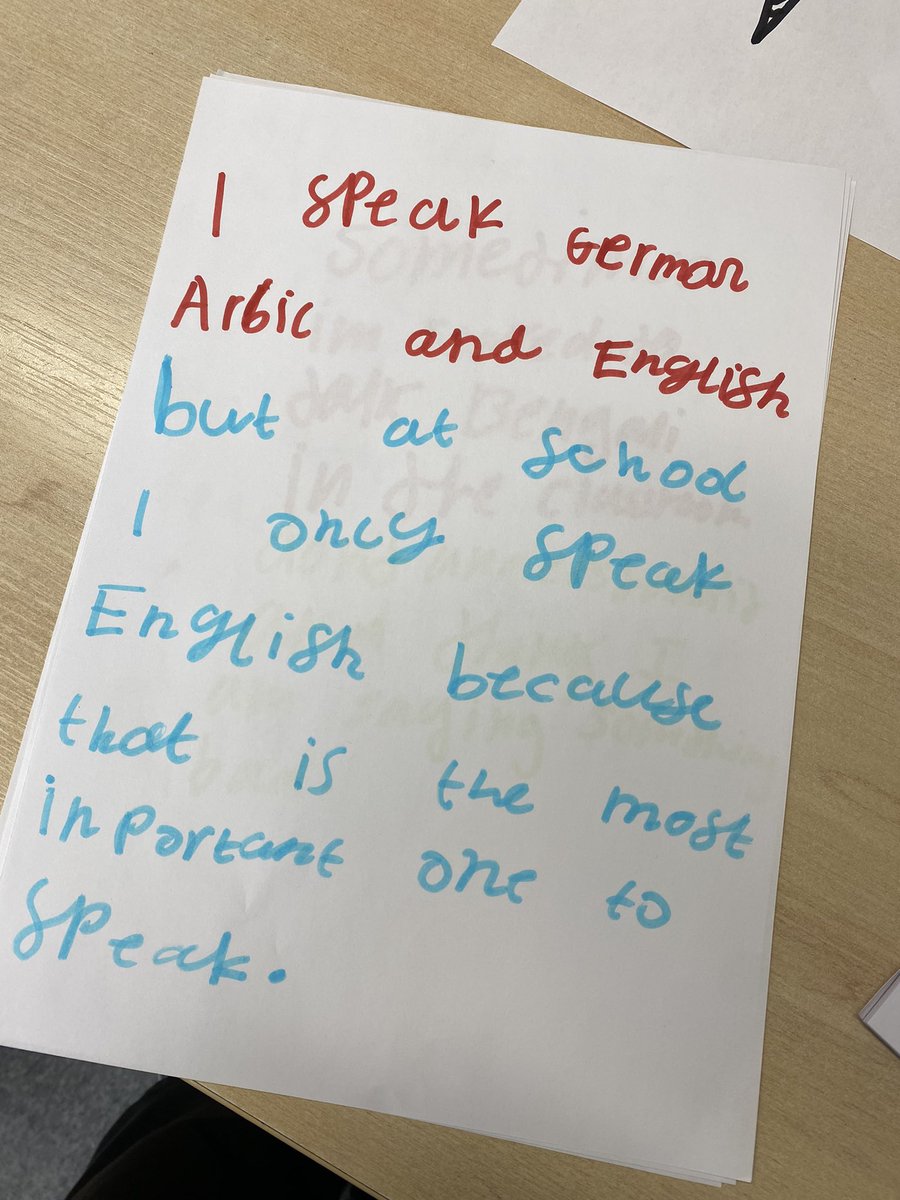 I speak German
Arbic and English
but at school
I only speak
English because
that is the most
inportant one to
speak.